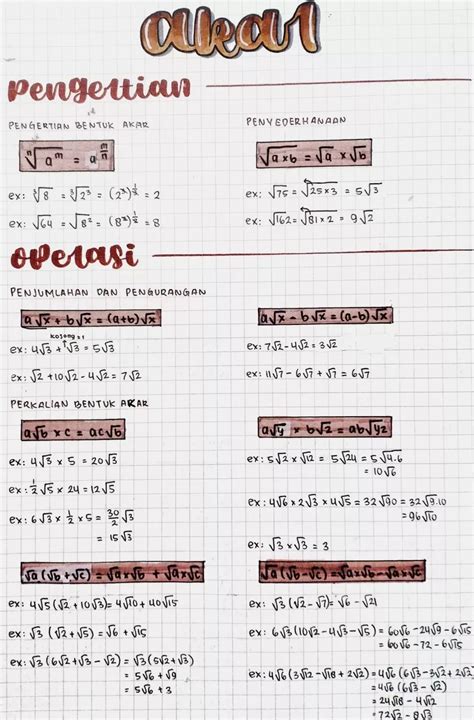 akar
Pengertian
PENGERTIAN BENTUK AKAR
ⁿ√aᵐ = a^(m/n)
ex: ³√8 = ³√2³ = (2³)^(1/3) = 2
ex: √64 = √8² = (8²)^(1/2) = 8
PENYEDERHANAAN
√a×b = √a × √b
ex: √75 = √25×3 = 5√3
ex: √162 = √81×2 = 9√2
operasi
PENJUMLAHAN DAN PENGURANGAN
a√x + b√x = (a+b)√x
kosong = 1
ex: 4√3 + √3 = 5√3
ex: √2 + 10√2 - 4√2 = 7√2
a√x - b√x = (a-b)√x
ex: 7√2 - 4√2 = 3√2
ex: 11√7 - 6√7 + √7 = 6√7
PERKALIAN BENTUK AKAR
a√b × c = ac√b
ex: 4√3 × 5 = 20√3
ex: 1/2 √5 × 24 = 12√5
ex: 6√3 × 1/2 × 5 = 30/2 √3
= 15√3
a√y × b√z = ab√yz
ex: 5√2 × √12 = 5√24 = 5√4.6
= 10√6
ex: 4√6 × 2√3 × 4√5 = 32√90 = 32√9.10
= 96√10
ex: √3 × √3 = 3
√a (√b + √c) = √a×√b + √a×√c
ex: 4√5 (√2 + 10√3) = 4√10 + 40√15
ex: √3 (√2 + √5) = √6 + √15
ex: √3 (6√2 + √3 - √2) = √3 (5√2 + √3)
= 5√6 + √9
= 5√6 + 3
√a (√b - √c) = √a×√b - √a×√c
ex: √3 (√2 - √7) = √6 - √21
ex: 6√3 (10√2 - 4√3 - √5) = 60√6 - 24√9 - 6√15
= 60√6 - 72 - 6√15
ex: 4√6 (3√12 - √18 + 2√2) = 4√6 (6√3 - 3√2 + 2√2)
= 4√6 (6√3 - √2)
= 24√18 - 4√12
= 72√2 - 8√3